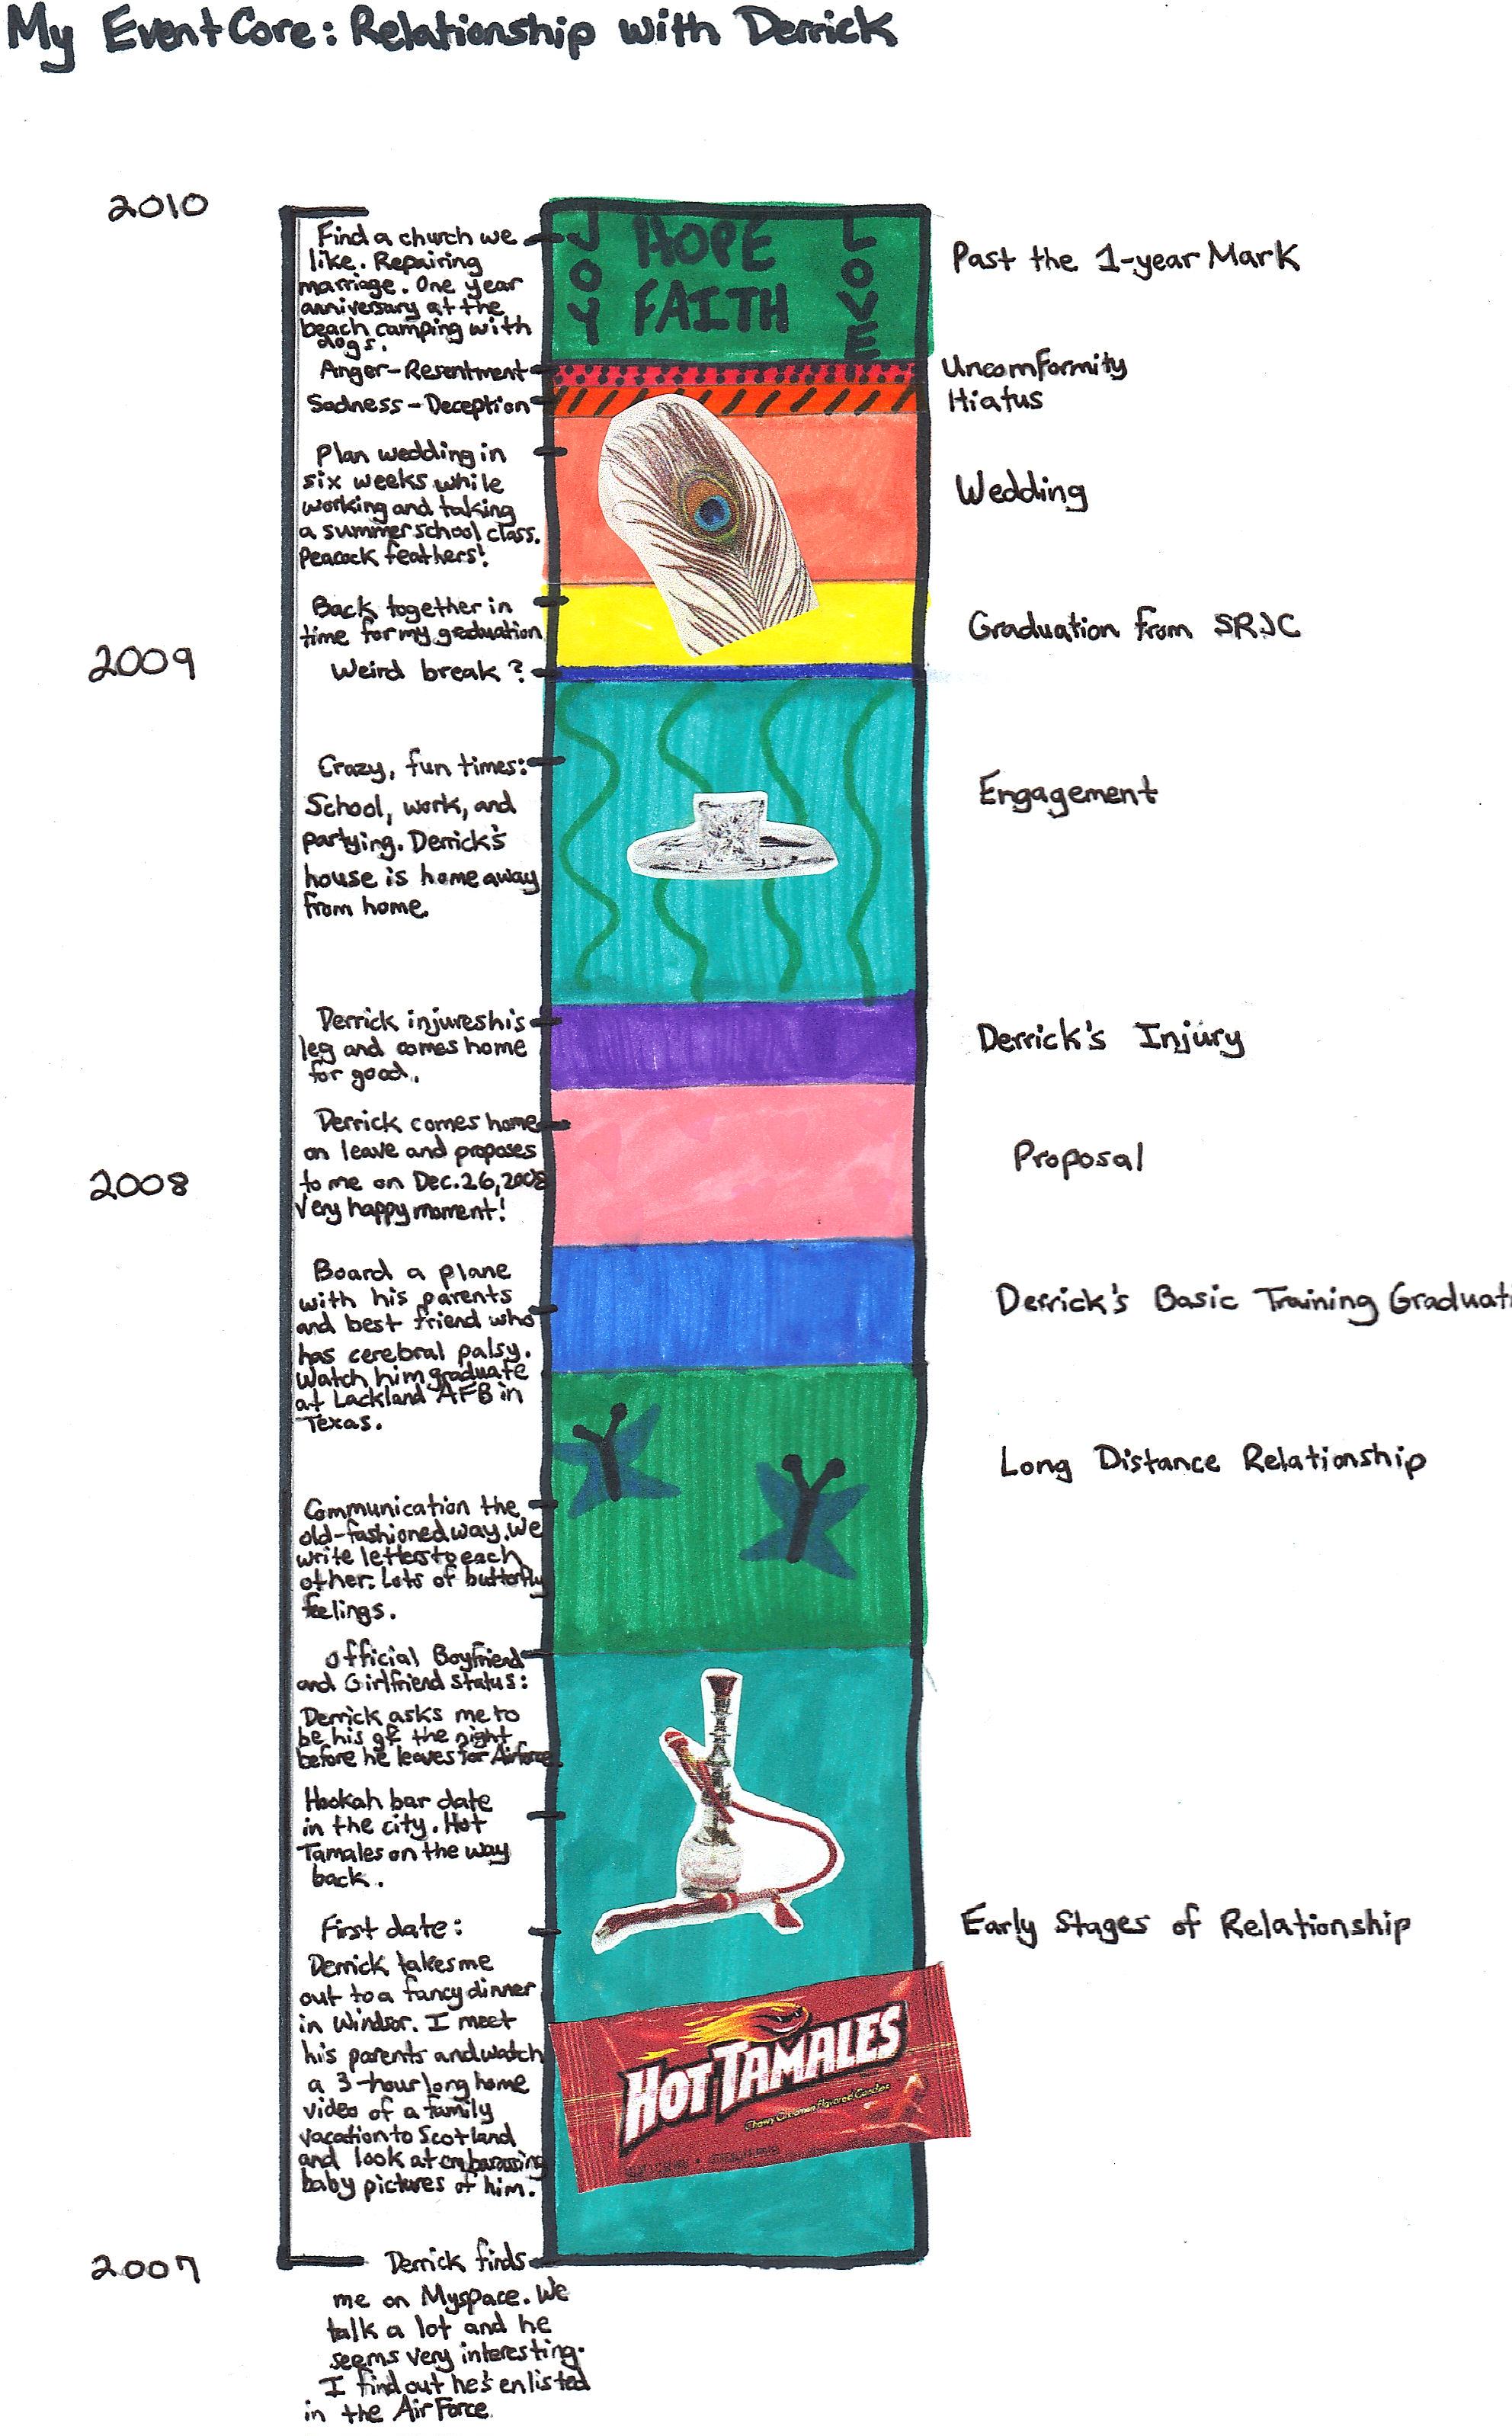 My Event Core: Relationship with Derrick
2010
Find a church we
like. Repairing
marriage. One year
anniversary at the
beach camping with
dogs.
JOY
HOPE
FAITH
LOVE
Past the 1-year Mark
Anger-Resentment
Uncomformity
Sadness-Deception
Hiatus
Plan wedding in
six weeks while
working and taking
a summer school class.
Peacock feathers!
Wedding
Back together in
time for my graduation
Graduation from SRJC
2009
Weird break?
Crazy, fun times:
School, work, and
partying. Derrick's
house is home away
from home.
Engagement
Derrick injures his
leg and comes home
for good.
Derrick's Injury
Derrick comes home
on leave and proposes
to me on Dec. 26, 2008
Very happy moment!
Proposal
2008
Board a plane
with his parents
and best friend who
has cerebral palsy.
Watch him graduate
at Lackland AFB in
Texas.
Derrick's Basic Training Graduati
Communication the
old-fashioned way. We
write letters to each
other. Lots of butterfly
feelings.
Long Distance Relationship
Official Boyfriend
and Girlfriend status:
Derrick asks me to
be his gf the night
before he leaves for Airforce.
Hookah bar date
in the city. Hot
Tamales on the way
back.
First date:
Derrick takes me
out to a fancy dinner
in Windsor. I meet
his parents and watch
a 3-hour long home
video of a family
vacation to Scotland
and look at embarassing
baby pictures of him.
Early Stages of Relationship
HOT TAMALES
Chewy Cinnamon Flavored Candies
2007
Derrick finds
me on Myspace. We
talk a lot and he
seems very interesting.
I find out he's enlisted
in the Air Force